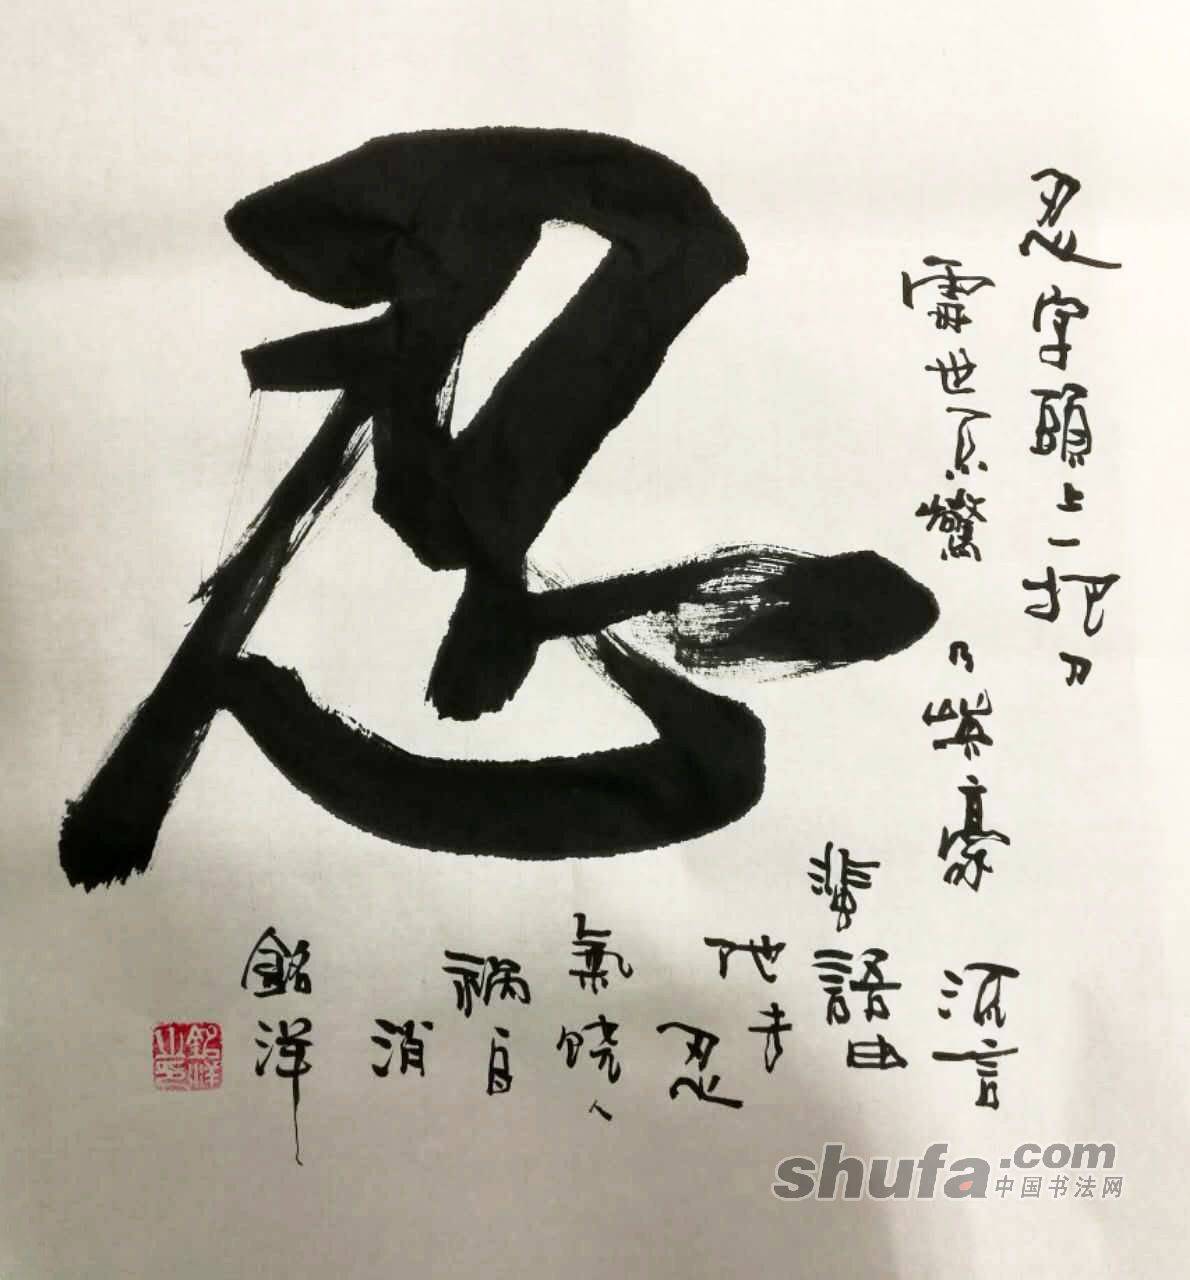 忍
忍字頭上一把刀
世不驚乃英豪 流言
蜚語由
他去
忍
氣饒人
祸自
消
銘洋
銘洋之印
shufa.com
中国书法网